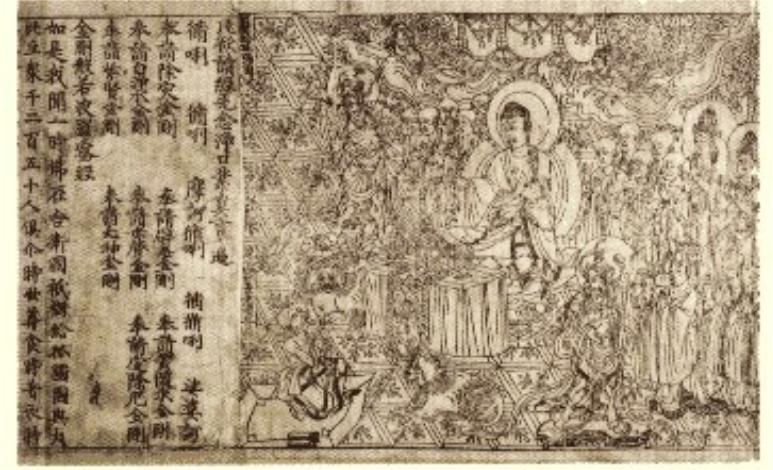 凡欲讀經先念淨口業真言一遍
脩唎 脩唎 摩訶脩唎 脩脩唎 娑婆訶
奉請除灾金剛 奉請辟毒金剛 奉請黃隨求金剛
奉請白淨水金剛 奉請赤聲金剛 奉請定除厄金剛
奉請紫賢金剛 奉請大神金剛
金剛般若波羅蜜經
如是我聞一時佛在舍衛國祇樹給孤獨園與大
比丘衆千二百五十人俱介時世尊食時著衣持